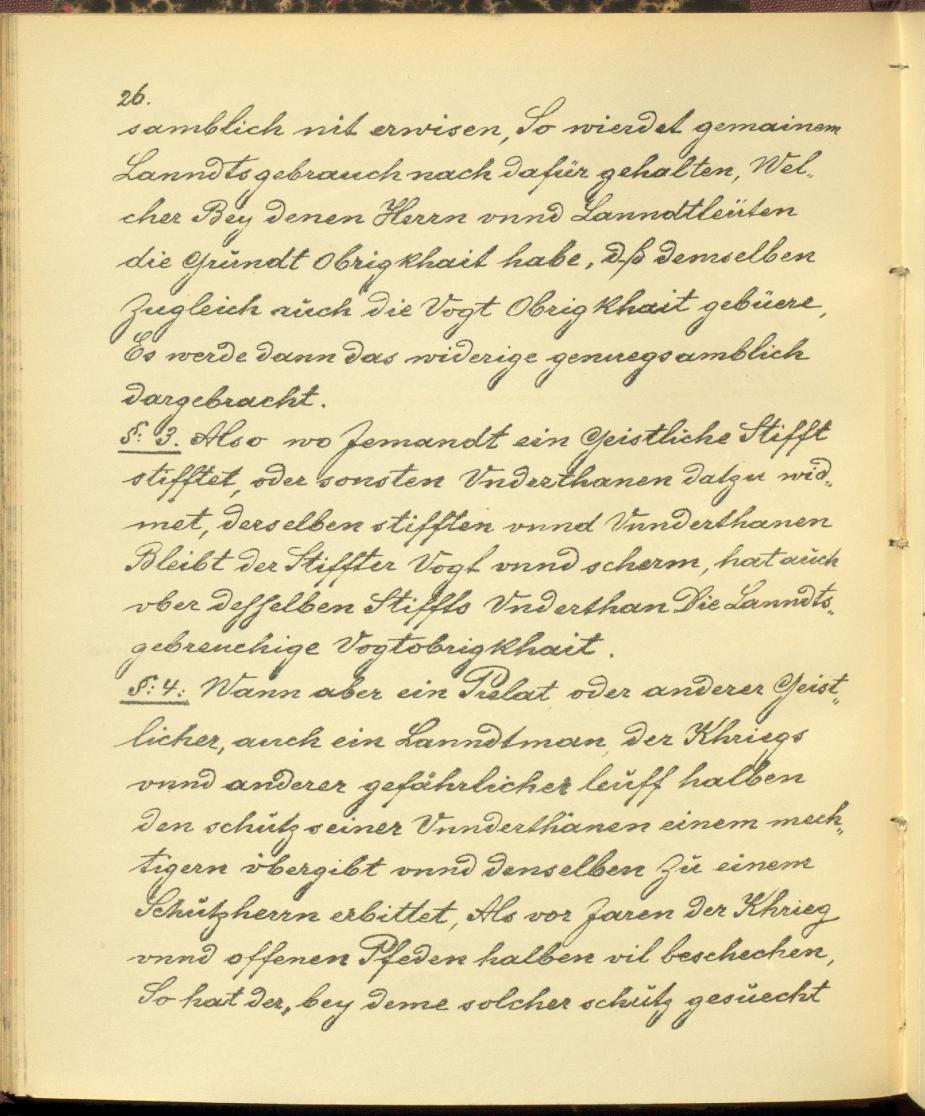 26.
samblich nit erwisen, So wierdet gemainem
Lanndtsgebrauch nach dafür gehalten, Wel„
cher Bey denen Herrn vnnd Lanndtleüten
die Grŭndt Obrigkhait habe, dß demselben
Zugleich aŭch die Vogt Obrigkhait gebüere,
Es werde dann das widerige genuegsamblich
dargebracht.
§: 3. Also wo Jemandt ein Geistliche Stifft
stifftet, oder sonsten Vnderthanen datzu wid„
met, derselben stifften vnnd Vnnderthanen
Bleibt der Stiffter Vogt vnnd scherm, hat aŭch
vber desselben Stiffts Vnderthan Die Lanndts„
gebreuchige Vogtobrigkhait.
§: 4: Wann aber ein Prelat oder anderer Geist„
licher, auch ein Lanndtman, der Khriegs
vnnd anderer gefährlicher leŭff halben
den schŭtz seiner Vnnderthanen einem mech„
tigern vbergibt vnnd denselben Zŭ einem
Schŭtzherrn erbittet, Als vor Jaren der Khrieg
vnnd offenen Pfeden halben vil beschechen,
So hat der, bey deme solcher schŭtz gesŭecht